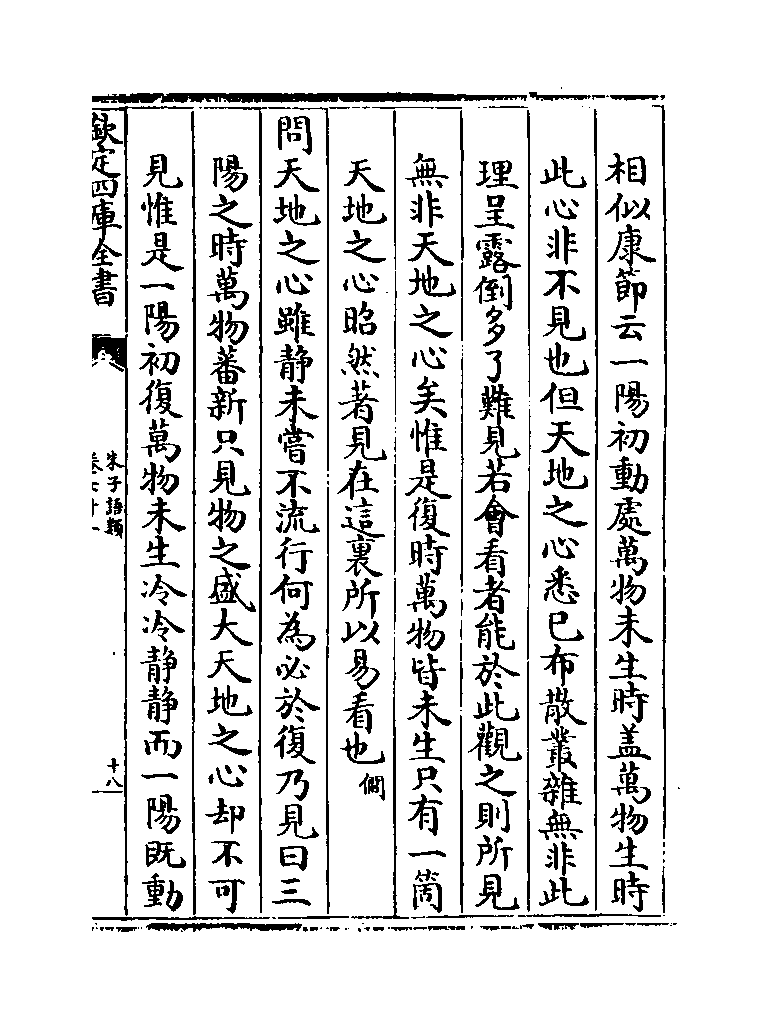 相似康節云一陽初動處萬物未生時盖萬物生時
此心非不見也但天地之心悉已布散叢雜無非此
理呈露倒多了難見若會看者能於此觀之則所見
無非天地之心矣惟是復時萬物皆未生只有一箇
天地之心昭然著見在這裏所以易看也僩
問天地之心雖静未嘗不流行何為必於復乃見曰三
陽之時萬物蕃新只見物之盛大天地之心却不可
見惟是一陽初復萬物未生冷冷静静而一陽既動
欽定四庫全書
朱子語類
卷七十一
十八